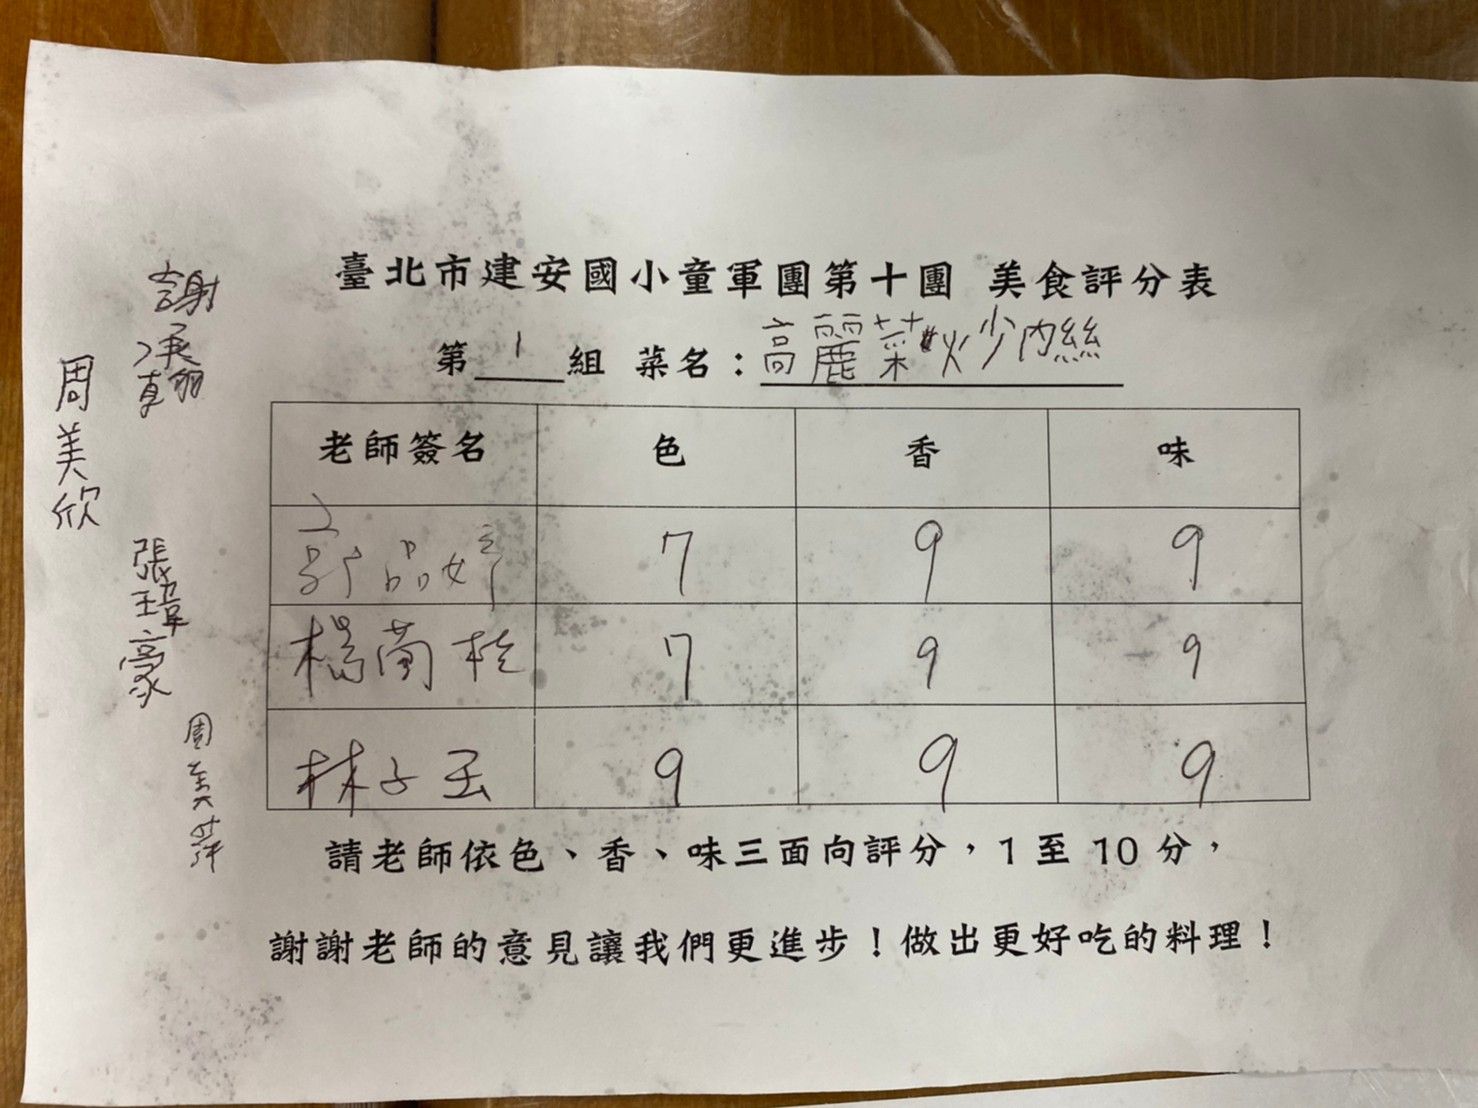 臺北市建安國小童軍團第十團 美食評分表
第 1 組 菜名：高麗菜炒肉絲
老師簽名 色 香 味
郭品婷 7 9 9
楊蘭桂 7 9 9
林子玉 9 9 9
請老師依色、香、味三面向評分，1 至 10 分，
謝謝老師的意見讓我們更進步！做出更好吃的料理！
謝承翰
周美欣
張瑋豪
周美萍